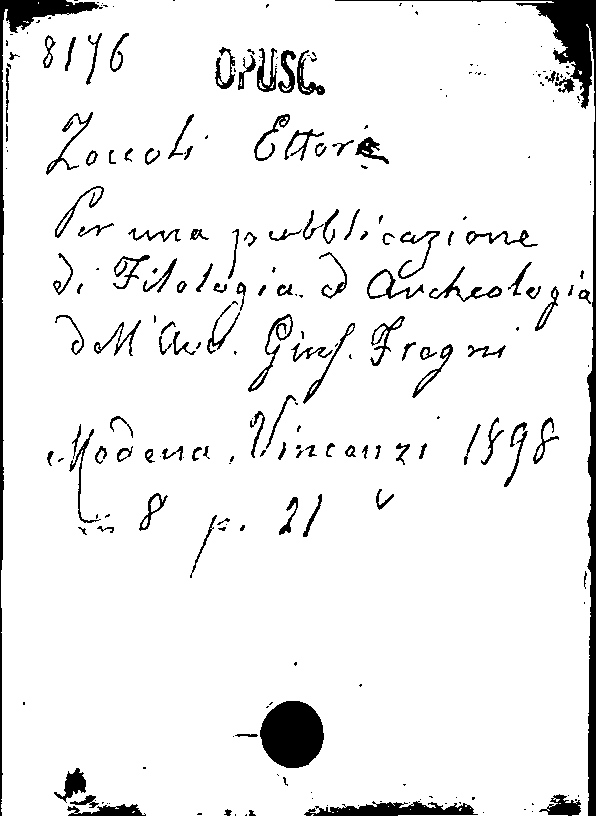 8176
OPUSC.
Zoccoli Ettore
Per una pubblicazione
di Filologia ed Archeologia
dell'Avv. Gius. Fregni
Modena, Vincenzi 1898
in 8 p. 21